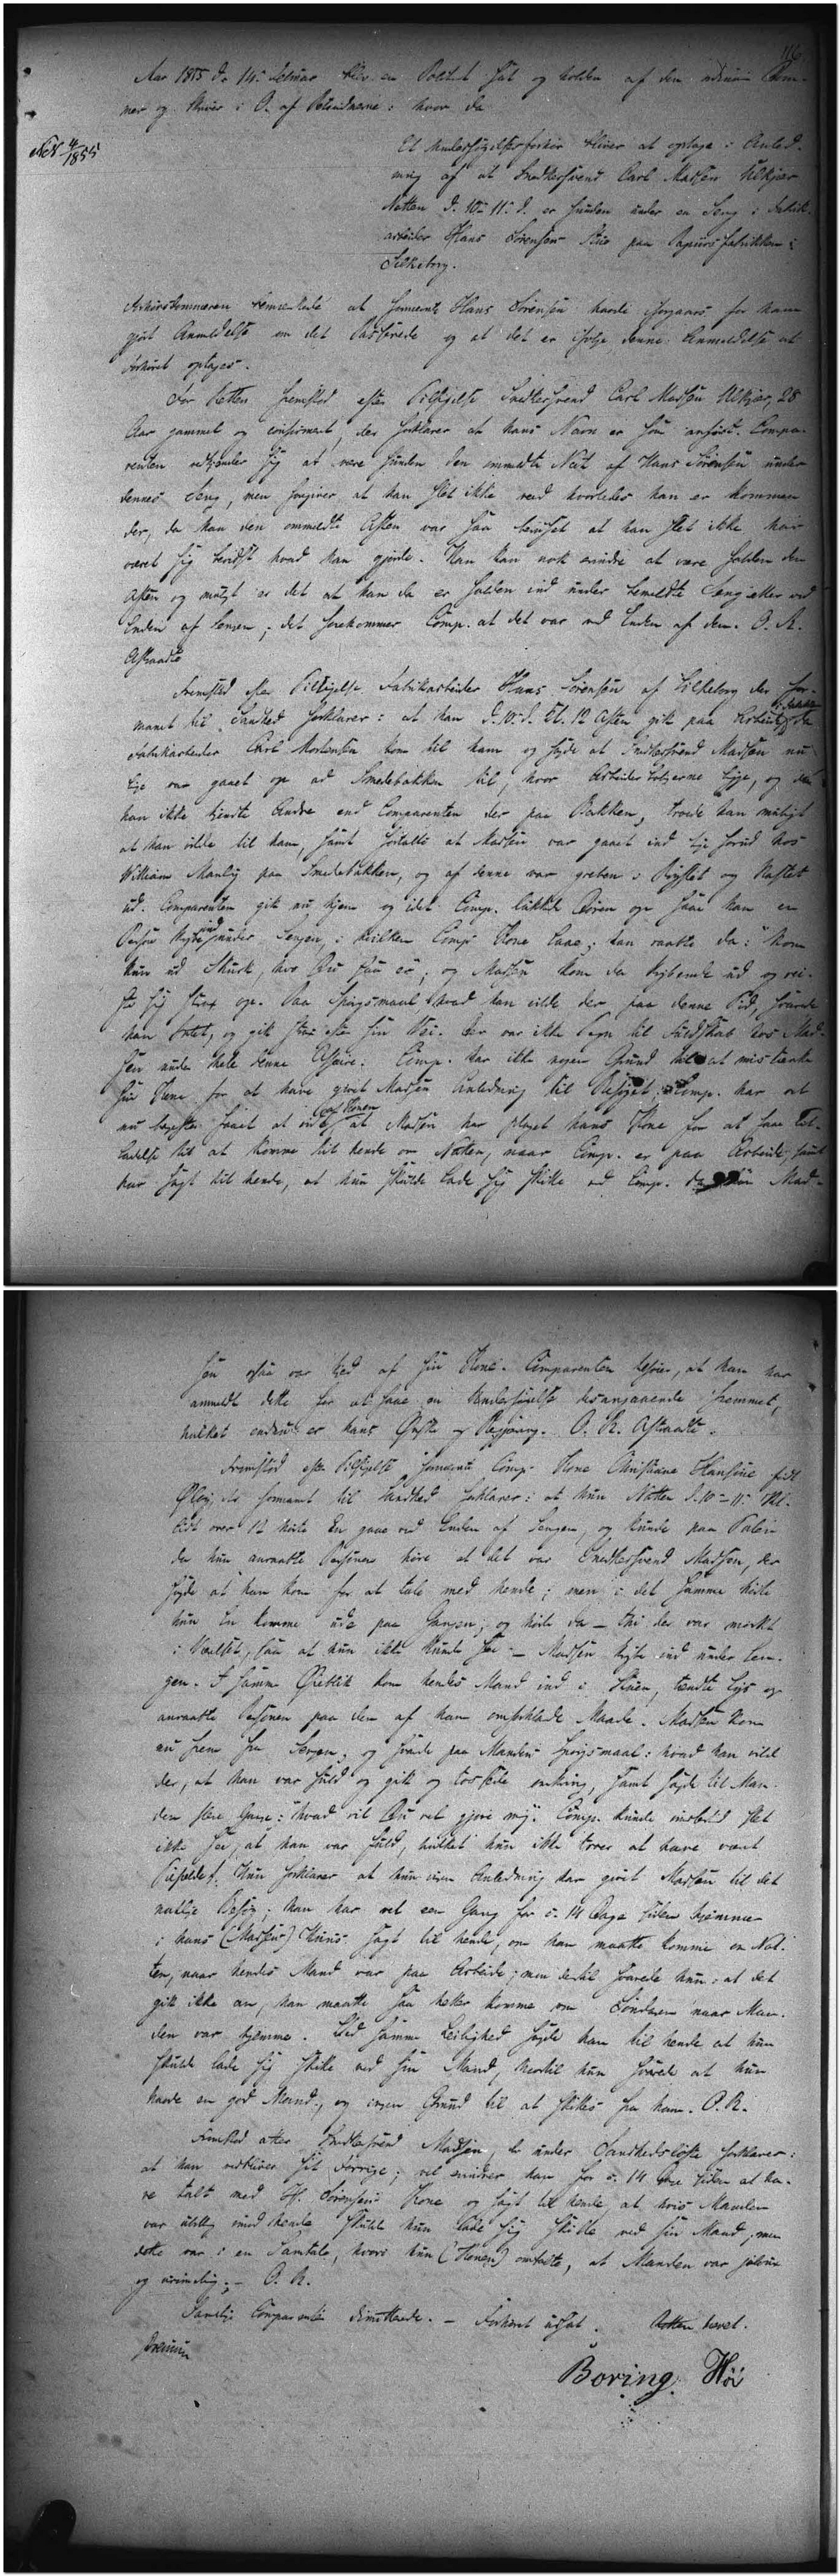 116.
Aar 1855 d. 14. Februar blev en Politiret sat og holden af den ordinære Dom-
mer og Skriver i O. af Retsvidnerne: hvor da
Nr 4/1855
Et Undersøgelsesforhør bliver at optage i Anled-
ning af at Snedkersvend Carl Madsen Ulkjær
Natten d. 10-11. d. er funden under en Seng i Fabrik-
arbeider Hans Sørensens Stue paa Papirsfabrikken i
Silkeborg.
bemærkede at fornævnte Hans Sørensen havde iforgaars for ham
gjort Anmeldelse om det Passerede og at det er ifølge denne Anmeldelse at
Forhøret optages.
For Retten fremstod efter Tilsigelse Snedkersvend Carl Madsen Ulkjær, 28
Aar gammel og confirmeret, der forklarer at hans Navn er som anført. Compa-
renten vedkjender sig at være funden den ommeldte Nat af Hans Sørensen under
dennes Seng, men foregiver at han slet ikke veed hvorledes han er kommen
der, da han den ommeldte Aften var saa beruset at han slet ikke har
været sig bevidst hvad han gjorde. Han kan nok erindre at være falden den
Aften og muligt er det at han da er falden ind under bemeldte Seng eller ved
Enden af Sengen; det forekommer Comp. at det var ved Enden af den. O. R.
Aftraadte
Fremstod efter Tilsigelse Fabrikarbeider Hans Sørensen af Silkeborg der for-
manet til Sandhed forklarer: at han d. 10. d. Kl. 12 Aften gik paa Arbeide da
Fabrikarbeider Carl Mortensen kom til ham og sagde at Snedkersvend Madsen nu
lige var gaaet op ad Smedebakken til, hvor Arbeiderboligerne ligge, og da
han ikke kjendte Andre end Comparenten der paa Bakken, troede han muligt
at han vilde til ham, samt fortalte at Madsen var gaaet ind lige forud hos
William Manly paa Smedebakken, og af denne var greben i Brystet og kastet
ud. Comparenten gik nu hjem og idet Comp. lukkede Døren op saae han en
Person krybe ind under Sengen, i hvilken Comp. Kone laae; han raabte da: "kom
kun ud Skurk, hvo Du saa er"; og Madsen kom da krybende ud og rei-
ste sig strax op. Paa Spørgsmaal, hvad han vilde der paa denne Tid, svarede
han Intet, og gik strax efter sin Vei. Der var ikke Tegn til Fuldskab hos Mad-
sen under hele denne Affaire. Comp. har ikke nogen Grund til at mistænke
sin Kone for at have givet Madsen Anledning til Besøget; Comp. har og
nu bagefter faaet at vide af Konen, at Madsen har plaget hans Kone for at faae Til-
ladelse til at komme til hende om Natten, naar Comp. er paa Arbeide, samt
har sagt til hende, at hun skulde lade sig skille ved Comp. Mad-
sen ogsaa var kjed af sin Kone. Comparenten tilføier, at han har
anmeldt dette for at faae en Undersøgelse desangaaende fremmet,
hvilket endnu er hans Ønske og Begjæring. O. R. Aftraadte.
Fremstod efter Tilsigelse fornævnte Comp. Kone Christiane Hansine født
der formanet til Sandhed forklarer: at hun Natten d. 10-11. Kl.
lidt over 12 hørte En gaae ved Enden af Sengen, og kunde paa Talen
da hun anraabte Personen høre at det var Snedkersvend Madsen, der
sagde at han kom for at tale med hende; men i det Samme hørte
hun En komme ude paa Gangen; og hørte da – thi der var mørkt
i Værelset, saa at hun ikke kunde see – Madsen krybe ind under Sen-
gen. I samme Øieblik kom hendes Mand ind i Stuen, tændte Lys og
anraabte Personen paa den af ham omforklarede Maade. Madsen kom
nu frem fra Sengen, og svarede paa Mandens Spørgsmaal: hvad han vilde
der, at han var fuld og gik og tossede omkring, samt sagde til Man-
den flere Gange: "hvad vil Du vel gjøre mig". Comp. kunde imidlertid slet
ikke see, at han var fuld, hvilket hun ikke troer at have været
Tilfældet. Hun forklarer at hun ingen Anledning har givet Madsen til det
natlige Besøg; han har vel een Gang for c. 14 Dage siden hjemme
i hans (Madsens) Huus sagt til hende, om han maatte komme en Nat-
ten, naar hendes Mand var paa Arbeide; men dertil svarede hun: at det
gik ikke an, han maatte saa heller komme om Søndagen naar Man-
den var hjemme. Ved samme Leilighed sagde han til hende at hun
skulde lade sig skille ved sin Mand, hvortil hun svarede at hun
havde en god Mand, og ingen Grund til at skilles fra ham. O. R.
Fremstod atter Snedkersvend Madsen, der under Sandhedsløfte forklarer:
at han vedbliver sit Forrige; vel erindrer han for c. 14 Dage siden at ha-
ve talt med H. Sørensens Kone og sagt til hende, at hvis Manden
var utilbørlig imod hende skulde hun lade sig skille ved sin Mand; men
dette var i en Samtale, hvori hun (Konen) omtalte, at Manden var jaloux
og urimelig; – O. R.
Samtlige Comparenter dimitterede. – Forhøret udsat. Retten hævet.
Boring. Høi